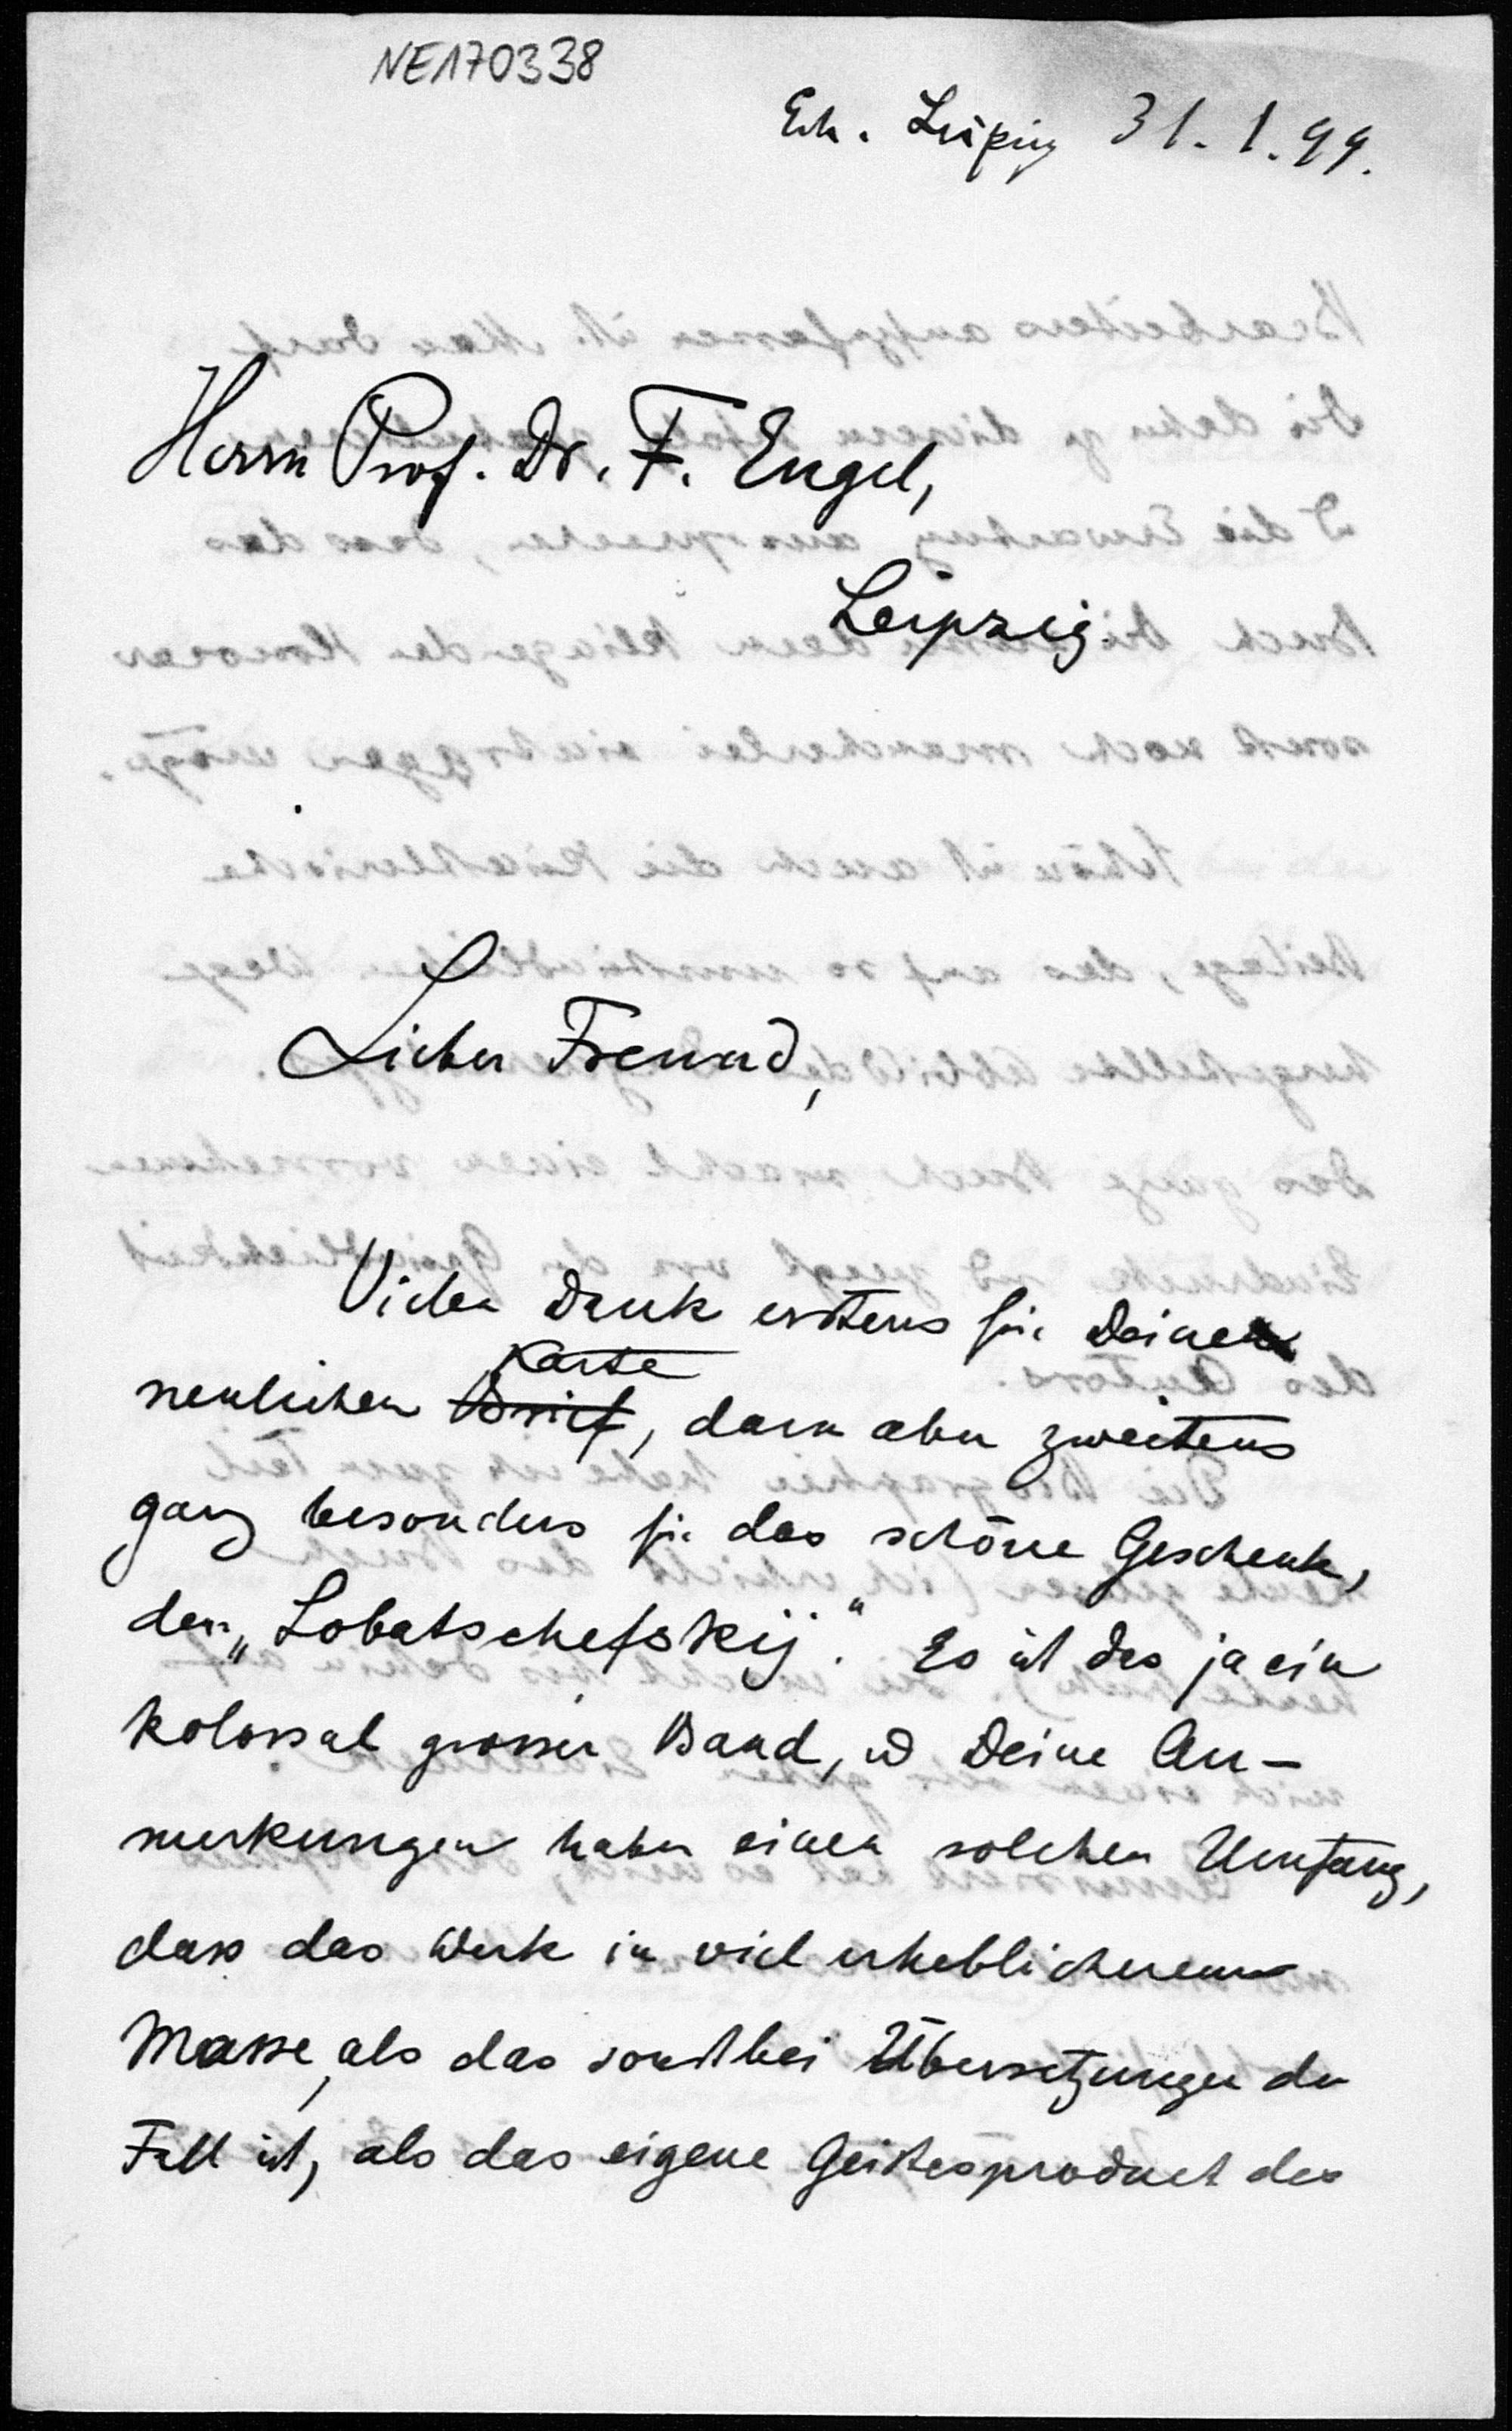 NE170338
Erh. Leipzig 31.1.99.
Herrn Prof. Dr. F. Engel,
Leipzig.
Lieber Freund,
Vielen Dank erstens für Deine
Karte
neulichen Brief, dann aber zweitens
ganz besonders für das schöne Geschenk,
den „Lobatschefskij“. Es ist das ja ein
kolossal grosser Band, u Deine An-
merkungen haben einen solchen Umfang,
dass das Werk in viel erheblicherem
Masse, als das sonst bei Übersetzungen der
Fall ist, als das eigene Geistesproduct des